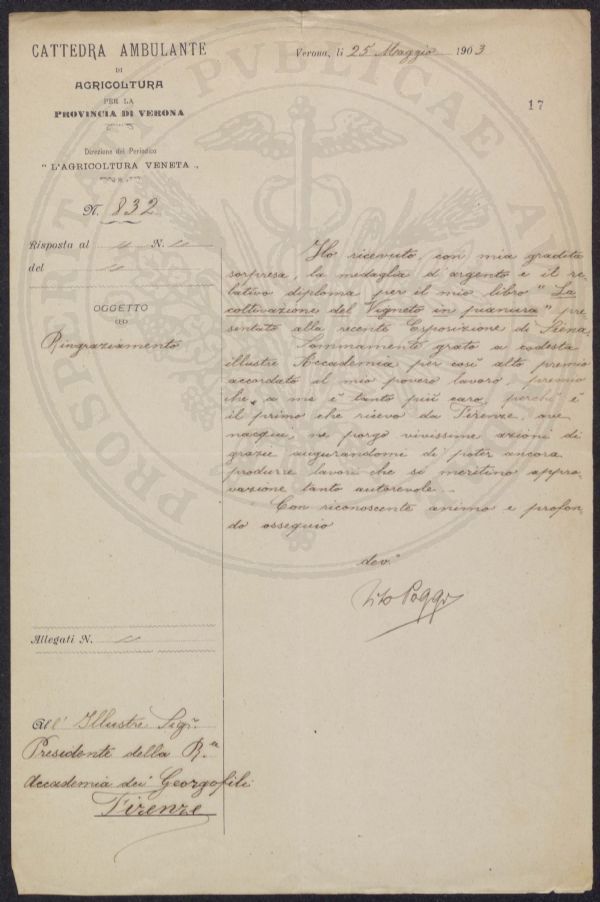 CATTEDRA AMBULANTE
DI
AGRICOLTURA
PER LA
PROVINCIA DI VERONA
Direzione del Periodico
" L'AGRICOLTURA VENETA "
N. 832
Risposta al " N. "
del "
OGGETTO
Ringraziamento
Verona, li 25 Maggio 1903
17
Ho ricevuto, con mia gradita
sorpresa, la medaglia d'argento e il re-
lativo diploma per il mio libro "La
coltivazione del Vigneto in pianura" pre
sentato alla recente Esposizione di Siena.
Sommamente grato a codesta
illustre Accademia per così alto premio
accordato al mio povero lavoro, premio
che, a me è tanto più caro, perchè è
il primo che ricevo da Firenze, ove
nacqui, ne porgo vivissime azioni di
grazie augurandomi di poter ancora
produrre lavori che si meritino appro-
vazione tanto autorevole.
Con riconoscente animo e profon-
do ossequio
dev.º
Tito Poggi
Allegati N. "
All' Illustre Sigr.
Presidente della R.a
Accademia dei Georgofili
Firenze
PROSPERITATI PVBLICAE